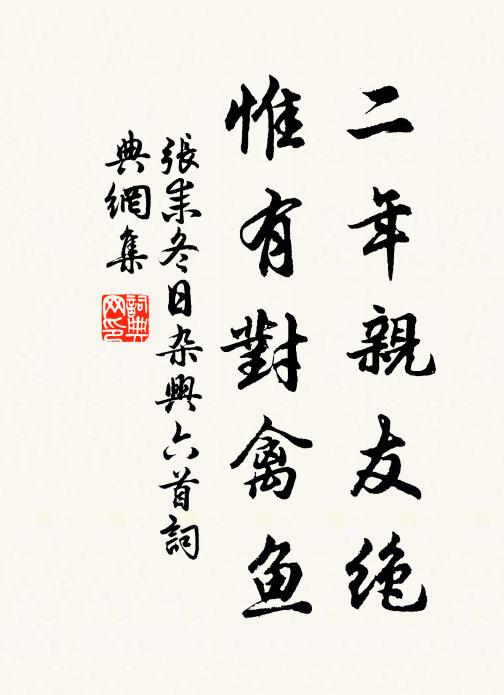 二年親友绝
惟有對禽鱼
張耒冬日杂興六首詞
典網集
詞典网印